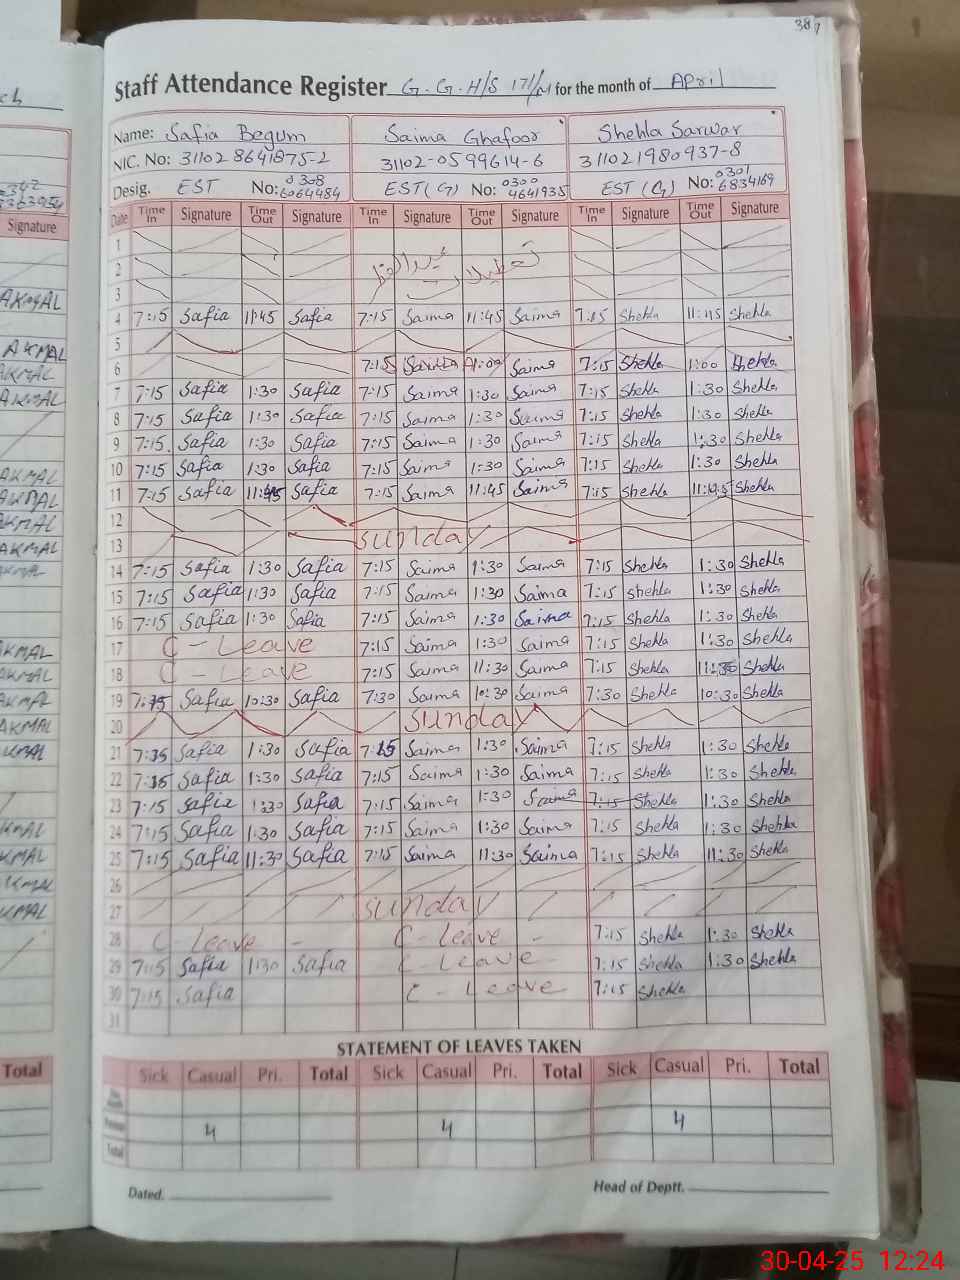 38
Staff Attendance Register G.G.H/S 171/M for the month of April
Name: Safia Begum Saima Ghafoor Shehla Sarwar
NIC. No: 31102 8641875-2 31102-0599614-6 311021980937-8
Desig. EST No: 0308 6064484 EST (G) No: 0300 4641935 EST (G) No: 0301 6834169
Date Time In Signature Time Out Signature Time In Signature Time Out Signature Time In Signature Time Out Signature
1
2 تعطیلات عیدالفطر
3
4 7:15 Safia 11:45 Safia 7:15 Saima 11:45 Saima 7:15 Shehla 11:45 Shehla
5
6 7:15 Saima 1:00 Saima 7:15 Shehla 1:00 Shehla
7 7:15 Safia 1:30 Safia 7:15 Saima 1:30 Saima 7:15 Shehla 1:30 Shehla
8 7:15 Safia 1:30 Safia 7:15 Saima 1:30 Saima 7:15 Shehla 1:30 Shehla
9 7:15 Safia 1:30 Safia 7:15 Saima 1:30 Saima 7:15 Shehla 1:30 Shehla
10 7:15 Safia 1:30 Safia 7:15 Saima 1:30 Saima 7:15 Shehla 1:30 Shehla
11 7:15 Safia 11:45 Safia 7:15 Saima 11:45 Saima 7:15 Shehla 11:45 Shehla
12
13 Sunday
14 7:15 Safia 1:30 Safia 7:15 Saima 1:30 Saima 7:15 Shehla 1:30 Shehla
15 7:15 Safia 1:30 Safia 7:15 Saima 1:30 Saima 7:15 Shehla 1:30 Shehla
16 7:15 Safia 1:30 Safia 7:15 Saima 1:30 Saima 7:15 Shehla 1:30 Shehla
17 C - Leave 7:15 Saima 1:30 Saima 7:15 Shehla 1:30 Shehla
18 C - Leave 7:15 Saima 11:30 Saima 7:15 Shehla 11:30 Shehla
19 Safia 10:30 Safia 7:30 Saima 10:30 Saima 7:30 Shehla 10:30 Shehla
20 Sunday
21 Safia 1:30 Safia 7:15 Saima 1:30 Saima 7:15 Shehla 1:30 Shehla
22 Safia 1:30 Safia 7:15 Saima 1:30 Saima 7:15 Shehla 1:30 Shehla
23 7:15 Safia 1:30 Safia 7:15 Saima 1:30 Saima 7:15 Shehla 1:30 Shehla
24 7:15 Safia 1:30 Safia 7:15 Saima 1:30 Saima 7:15 Shehla 1:30 Shehla
25 7:15 Safia 11:30 Safia 7:15 Saima 11:30 Saima 7:15 Shehla 11:30 Shehla
26
27 Sunday
28 C - Leave - C - Leave - 7:15 Shehla 1:30 Shehla
29 7:15 Safia 1:30 Safia C - Leave - 7:15 Shehla 1:30 Shehla
30 7:15 Safia C - Leave 7:15 Shehla
31
STATEMENT OF LEAVES TAKEN
Sick Casual Pri. Total Sick Casual Pri. Total Sick Casual Pri. Total
4 4 4
Total
Dated. Head of Deptt.
Signature
AKMAL
AKMAL
AKMAL
AKMAL
AKMAL
AKMAL
AKMAL
AKMAL
AKMAL
AKMAL
AKMAL
AKMAL
AKMAL
AKMAL
Total
30-04-25 12:24